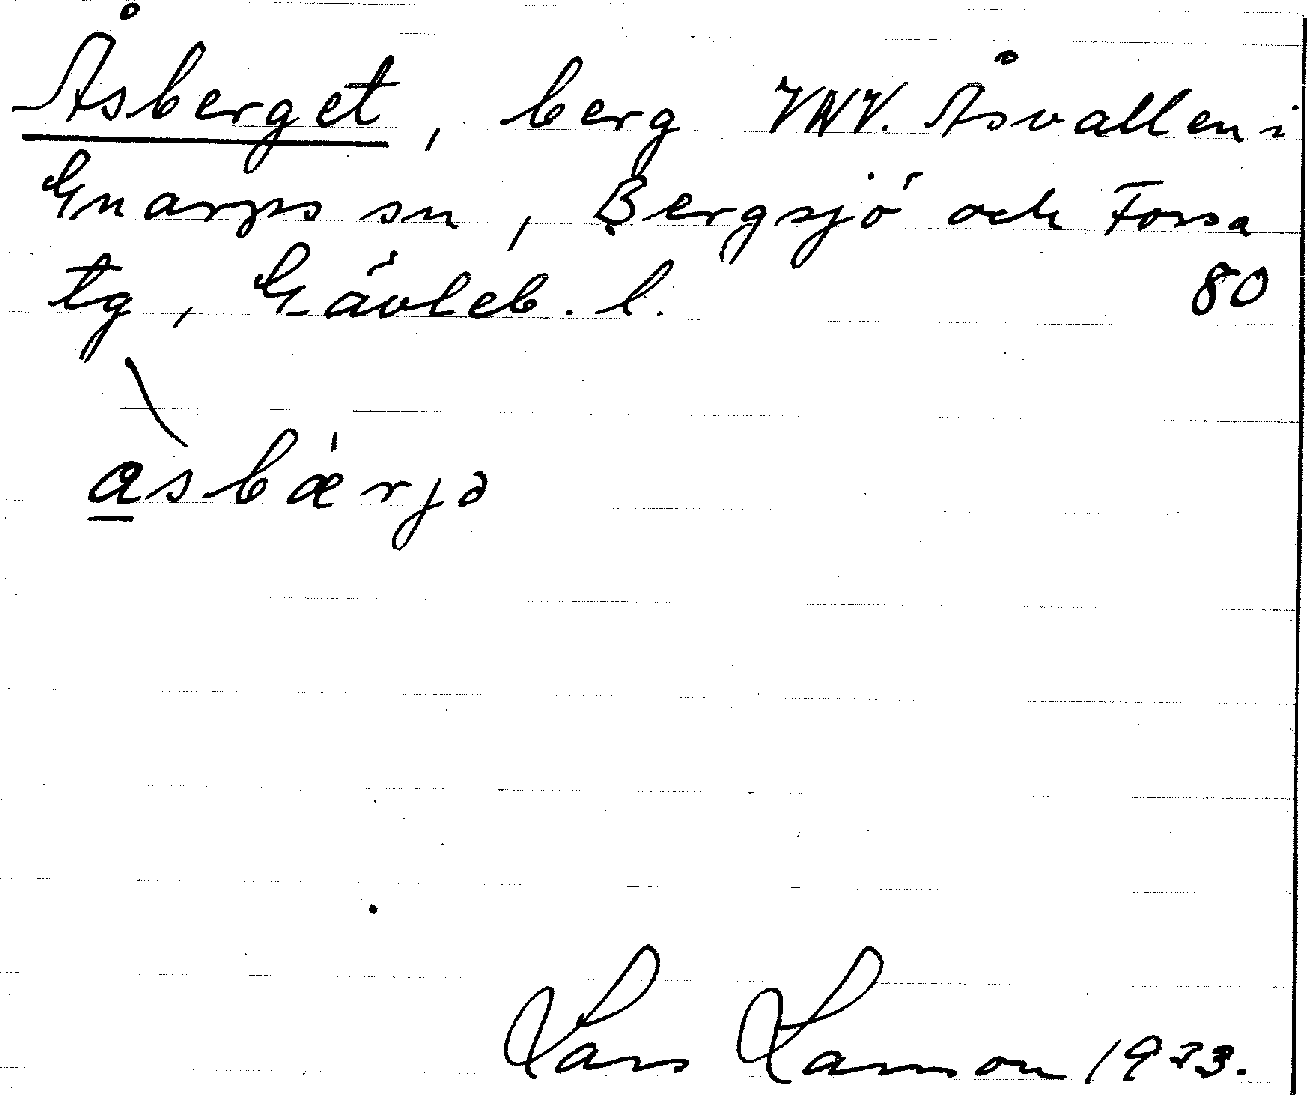 Åsberget, berg VNV. Åsvallen i
Gnarps sn, Bergsjö och Forsa
tg, Gävleb. l. 80
åsbærjə
Lars Larsson 1933.